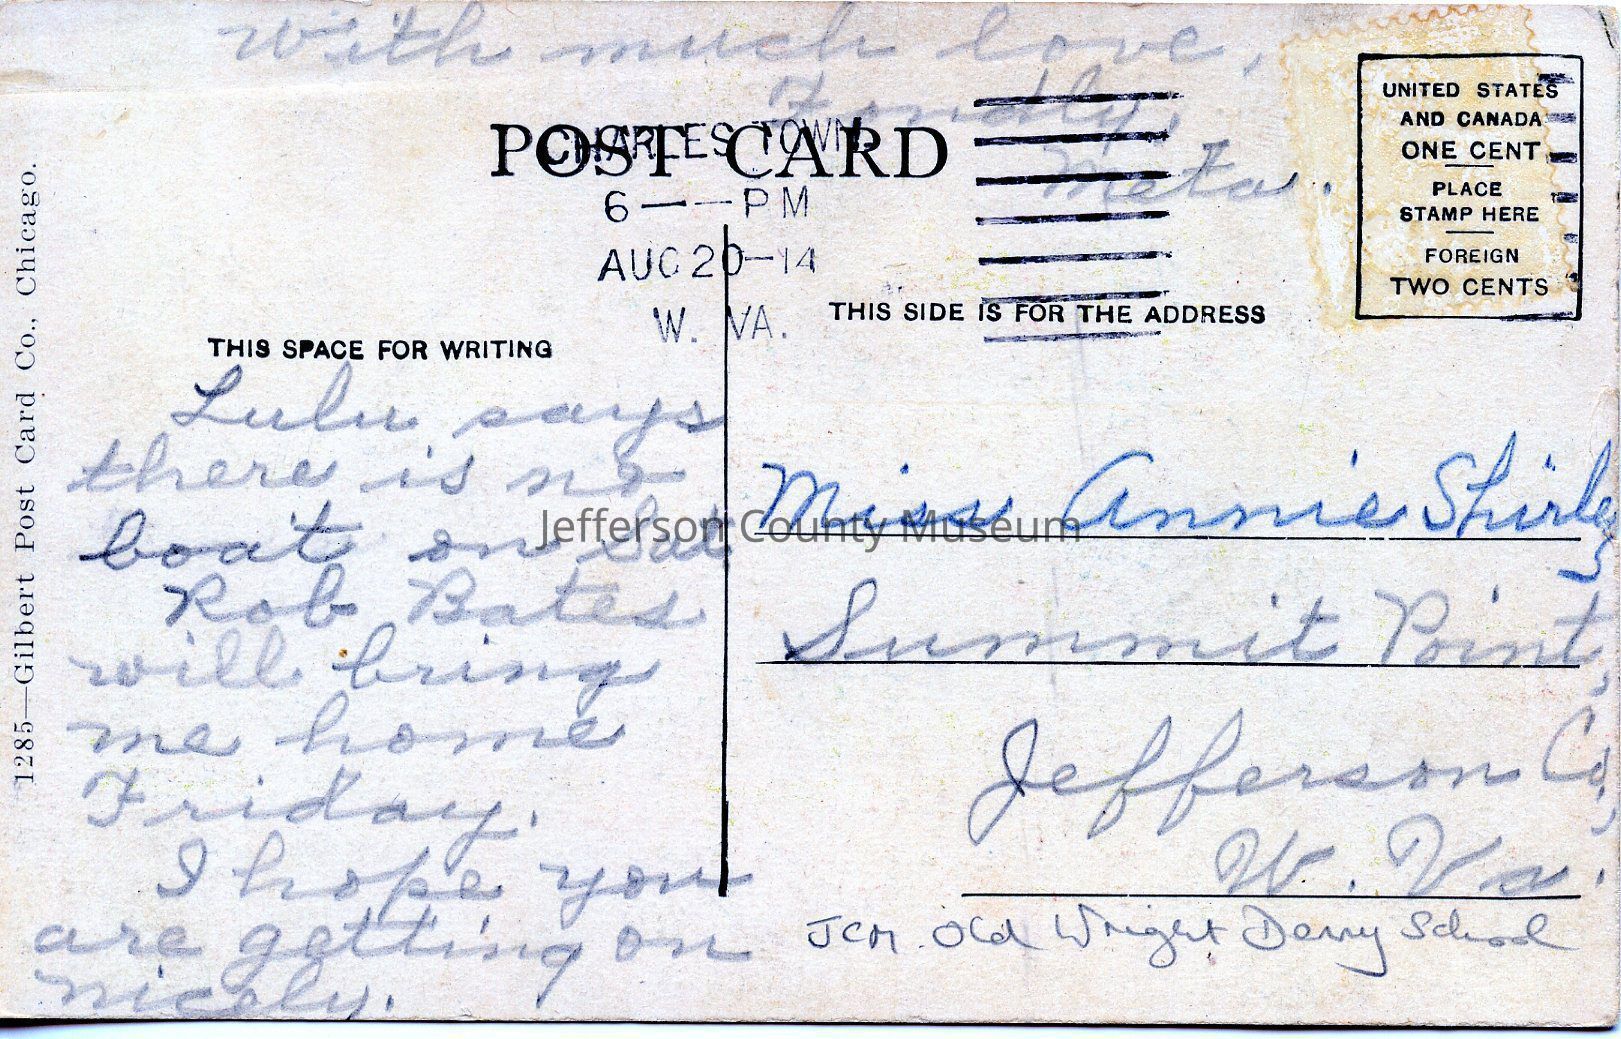 With much love,
Fondly,
Meta.
POST CARD
CHARLES TOWN,
6 — PM
AUG 20-14
W. VA.
UNITED STATES
AND CANADA
ONE CENT
PLACE
STAMP HERE
FOREIGN
TWO CENTS
THIS SPACE FOR WRITING
THIS SIDE IS FOR THE ADDRESS
Lulu says
there is no
boat on Sat
Rob Bates
will bring
me home
Friday.
I hope you
are getting on
nicely.
Miss Annie Shirley
Summit Point,
Jefferson Co,
W. Va.
JCM. Old Wright Denny School
1285—Gilbert Post Card Co., Chicago.
Jefferson County Museum